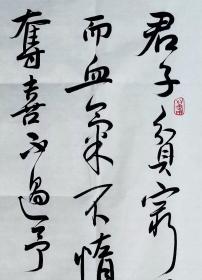 君子貧窮
而血氣不惰
奪喜不過予